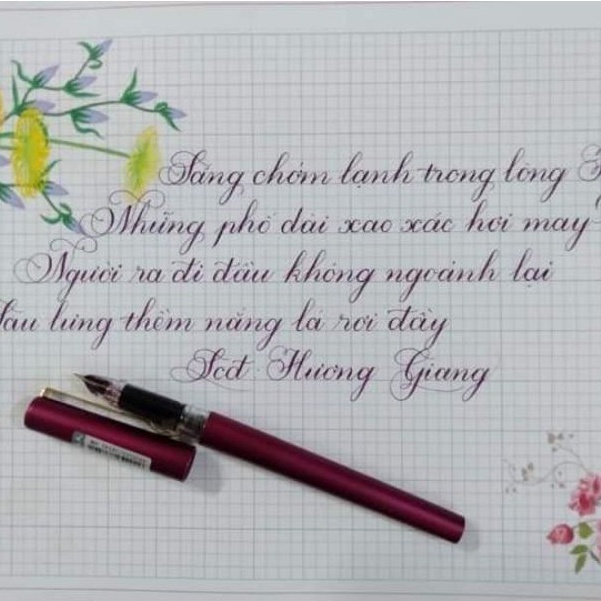 Sáng chớm lạnh trong lòng
Những phố dài xao xác hơi may
Người ra đi đầu không ngoảnh lại
Sau lưng thềm nắng lá rơi đầy
Hương Giang